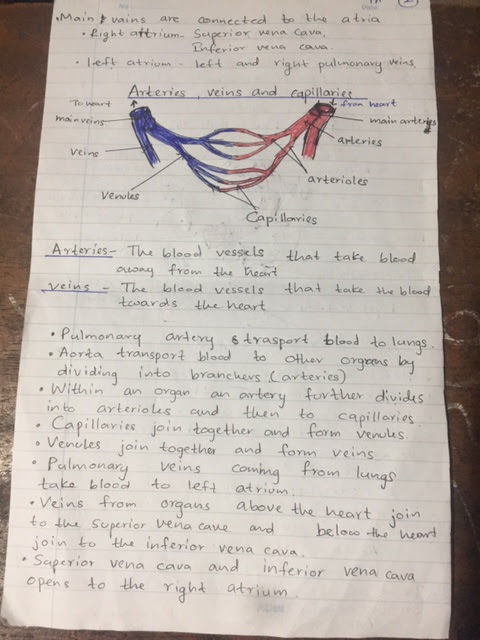 • Main vains are connected to the atria
• Right atrium - Superior vena cava,
Inferior vena cava.
• Left atrium - left and right pulmonary veins,
Arteries, veins and capillaries
To heart
from heart
main veins
main arteries
arteries
veins
arterioles
Venules
Capillaries
Arteries - The blood vessels that take blood
away from the heart
Veins - The blood vessels that take the blood
towards the heart
• Pulmonary artery trasport blood to lungs.
• Aorta transport blood to other organs by
dividing into branchers (arteries)
• Within an organ an artery further divides
into arterioles and then to capillaries.
• Capillaries join together and form venules.
• Venules join together and form veins
• Pulmonary veins coming from lungs
take blood to left atrium.
• Veins from organs above the heart join
to the superior vena cave and below the heart
join to the inferior vena cava.
• Superior vena cava and inferior vena cava
opens to the right atrium.